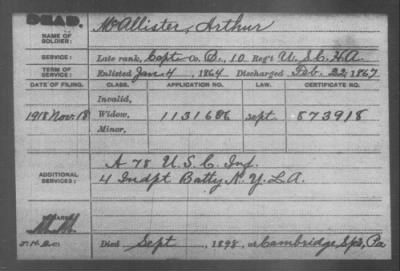 DEAD.
NAME OF SOLDIER: McAllister, Arthur
SERVICE: Late rank, Capt Co. D., 10 Reg't U.S.C.H.A.
TERM OF SERVICE: Enlisted Jan. 4, 1864. Discharged Feb. 22, 1867
DATE OF FILING. CLASS. APPLICATION NO. LAW. CERTIFICATE NO.
Invalid,
1918 Nov. 18 Widow, 1131686 Sept. 873918
Minor,
ADDITIONAL SERVICES:
A 78 U.S.C. Inf.
4 Indpt Batty N.Y.L.A.
Died Sept, 1898, at Cambridge Spgs, Pa